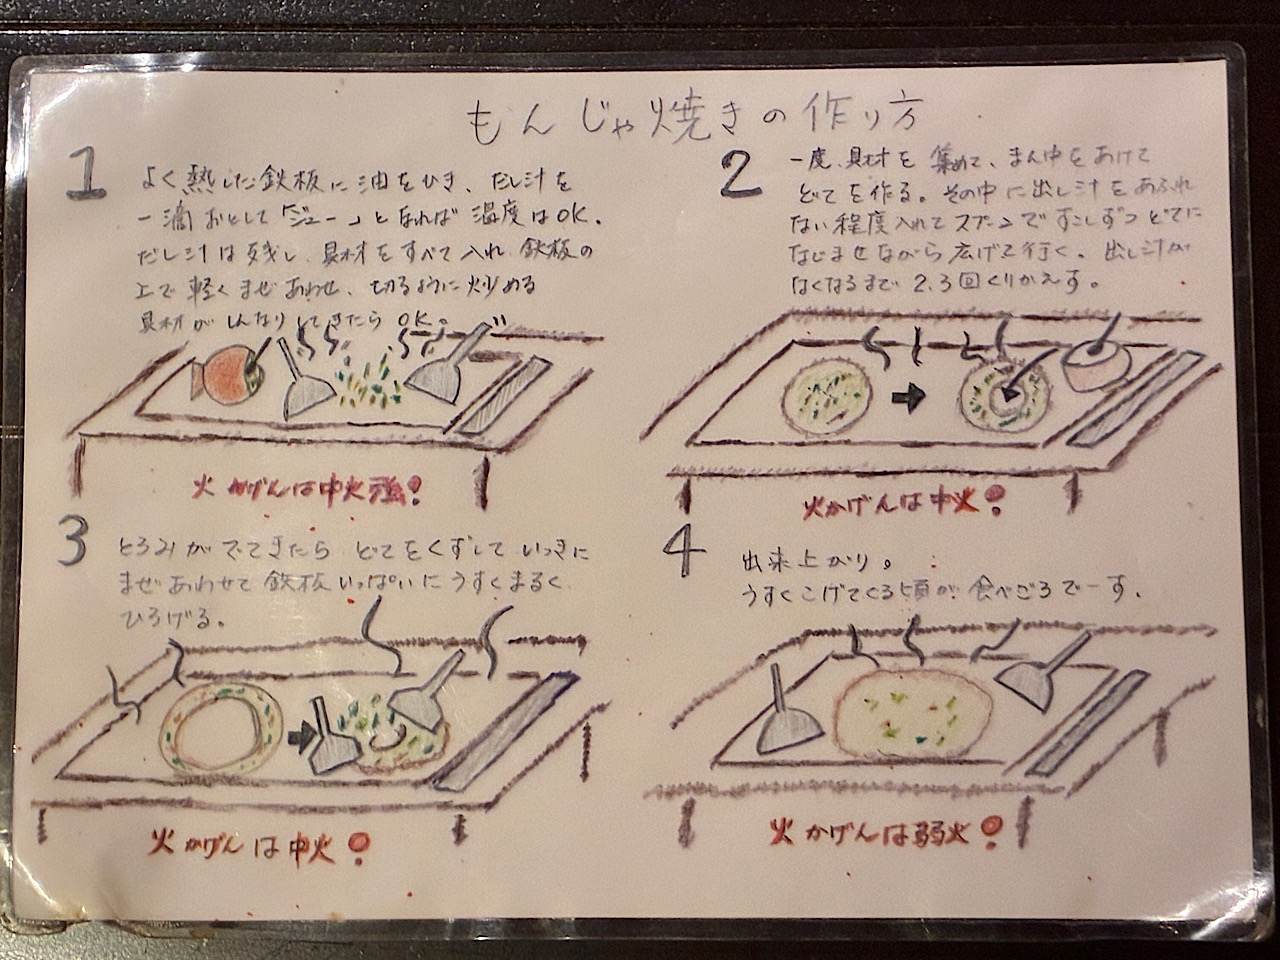 もんじゃ焼きの作り方
1
よく熱した鉄板に油をひき、だし汁を
一滴おとして「ジュー」となれば温度はOK。
だし汁は残し、具材をすべて入れ、鉄板の
上で軽くまぜあわせ、切るように炒める
具材がしんなりしてきたらOK。
火かげんは中火強!
2
一度、具材を集めて、まん中をあけて
どてを作る。その中に出し汁をあふれ
ない程度入れてスプーンですこしずつどてに
なじませながら広げて行く。出し汁が
なくなるまで2.3回くりかえす。
火かげんは中火!
3
とろみがでてきたら、どてをくずしていっきに
まぜあわせて鉄板いっぱいにうすくまるく
ひろげる。
火かげんは中火!
4
出来上がり。
うすくこげてくる頃が食べごろでーす.
火かげんは弱火!